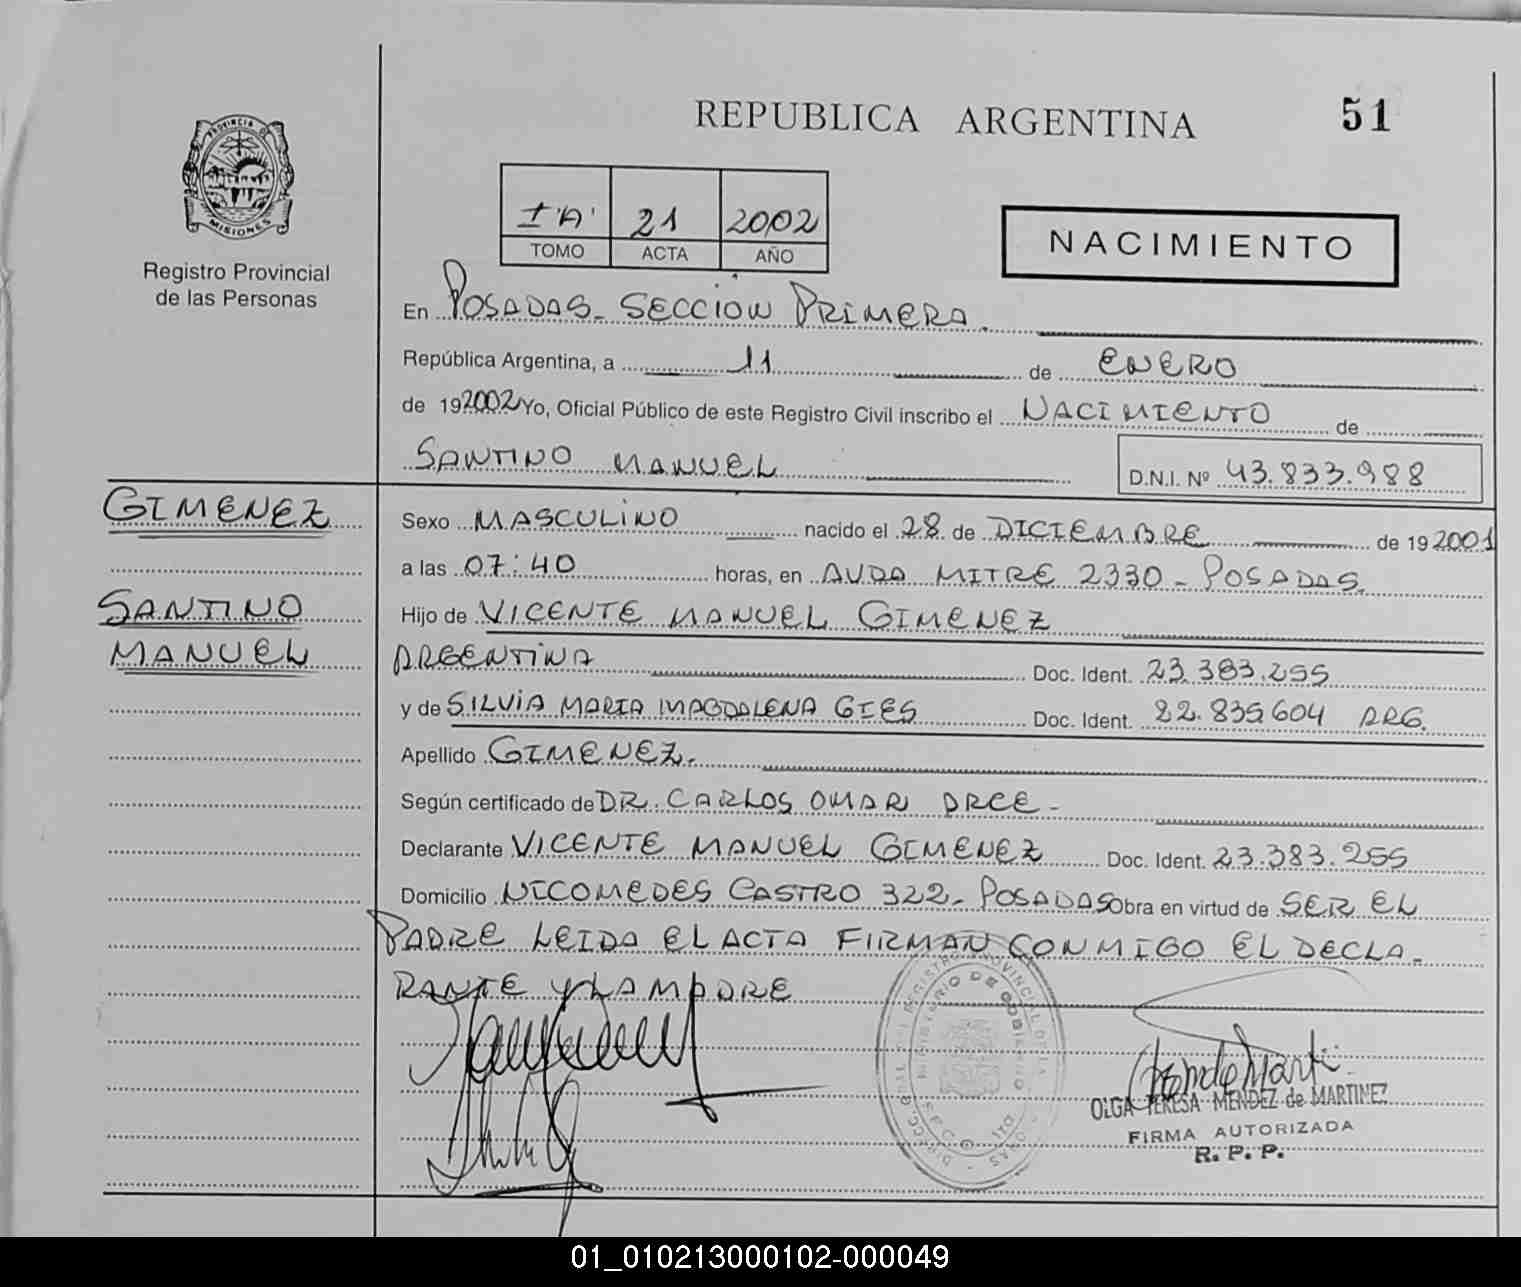 REPUBLICA ARGENTINA
51
PROVINCIA DE
MISIONES
Registro Provincial
de las Personas
I 'A' 21 2002
TOMO ACTA AÑO
NACIMIENTO
En POSADAS - SECCION PRIMERA.
República Argentina, a 11 de ENERO
de 192002 Yo, Oficial Público de este Registro Civil inscribo el NACIMIENTO de
SANTINO MANUEL D.N.I. Nº 43.833.988
GIMENEZ
SANTINO
MANUEL
Sexo MASCULINO nacido el 28 de DICIEMBRE de 19 2001
a las 07:40 horas, en AVDA MITRE 2330 - POSADAS.
Hijo de VICENTE MANUEL GIMENEZ
ARGENTINA Doc. Ident. 23.383.255
y de SILVIA MARIA MAGDALENA GIES Doc. Ident. 22.835604 ARG.
Apellido GIMENEZ.
Según certificado de DR. CARLOS OMAR ARCE -
Declarante VICENTE MANUEL GIMENEZ Doc. Ident. 23.383.255
Domicilio NICOMEDES CASTRO 322 - POSADAS Obra en virtud de SER EL
PADRE LEIDA EL ACTA FIRMAN CONMIGO EL DECLA-
RANTE Y LA MADRE
OLGA TERESA MENDEZ de MARTINEZ
FIRMA AUTORIZADA
R. P. P.
01_010213000102-000049